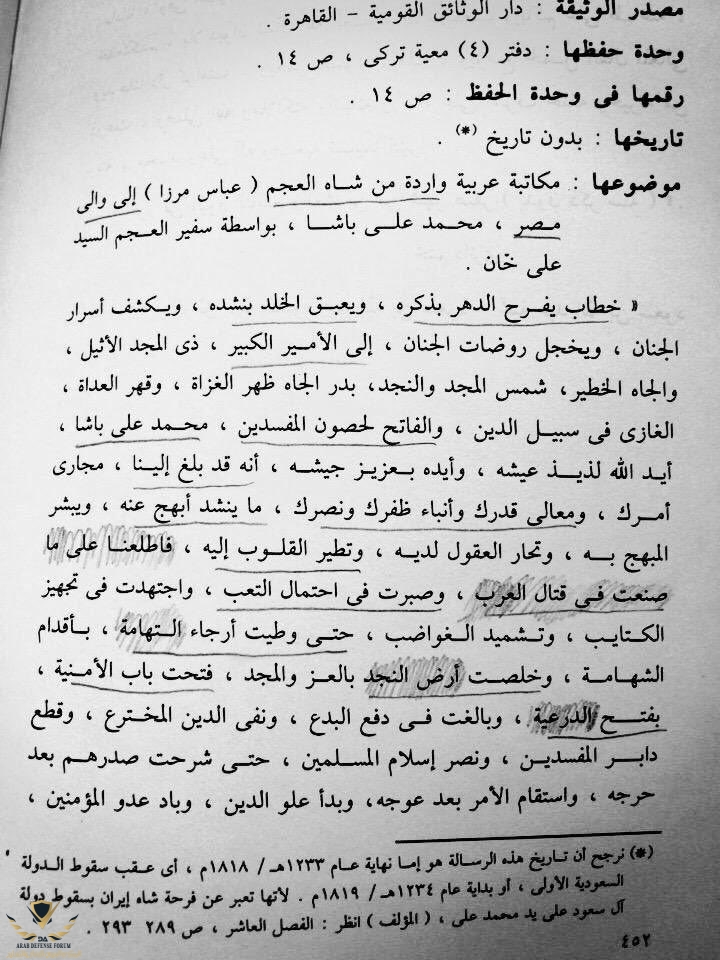 مصدر الوثيقة : دار الوثائق القومية – القاهرة .
وحدة حفظها : دفتر (٤) معية تركى ، ص ١٤ .
رقمها فى وحدة الحفظ : ص ١٤ .
تاريخها : بدون تاريخ (*) .
موضوعها : مكاتبة عربية واردة من شاه العجم ( عباس مرزا ) إلى والى
مصر ، محمد على باشا ، بواسطة سفير العجم السيد
على خان .
« خطاب يفرح الدهر بذكره ، ويعبق الخلد بنشده ، ويكشف أسرار
الجنان ، ويخجل روضات الجنان ، إلى الأمير الكبير ، ذى المجد الأثيل ،
والجاه الخطير، شمس المجد والنجد، بدر الجاه ظهر الغزاة ، وقهر العداة ،
الغازى فى سبيل الدين ، والفاتح لحصون المفسدين ، محمد على باشا ،
أيد الله لذيذ عيشه ، وأيده بعزيز جيشه ، أنه قد بلغ إلينا ، مجارى
أمرك ، ومعالى قدرك وأنباء ظفرك ونصرك ، ما ينشد أبهج عنه ، ويبشر
المبهج به ، وتحار العقول لديه ، وتطير القلوب إليه ، فاطلعنا على ما
صنعت فى قتال العرب ، وصبرت فى احتمال التعب ، واجتهدت فى تجهيز
الكتايب ، وتشميد الغواضب ، حتى وطيت أرجاء التهامة ، بأقدام
الشهامة ، وخلصت أرض النجد بالعز والمجد ، فتحت باب الأمنية ،
بفتح الدرعية ، وبالغت فى دفع البدع ، ونفى الدين المخترع ، وقطع
دابر المفسدين ، ونصر إسلام المسلمين ، حتى شرحت صدرهم بعد
حرجه ، واستقام الأمر بعد عوجه، وبدأ علو الدين ، وباد عدو المؤمنين ،
(*) نرجح أن تاريخ هذه الرسالة هو إما نهاية عام ١٢٣٣هـ / ١٨١٨م ، أى عقب سقوط الدولة
السعودية الأولى ، أو بداية عام ١٢٣٤هـ / ١٨١٩م . لأنها تعبر عن فرحة شاه إيران بسقوط دولة
آل سعود على يد محمد على ، ( المؤلف ) انظر : الفصل العاشر ، ص ٢٨٩ ٢٩٣ .
٤٥٢
DA
ARAB DEFENSE FORUM